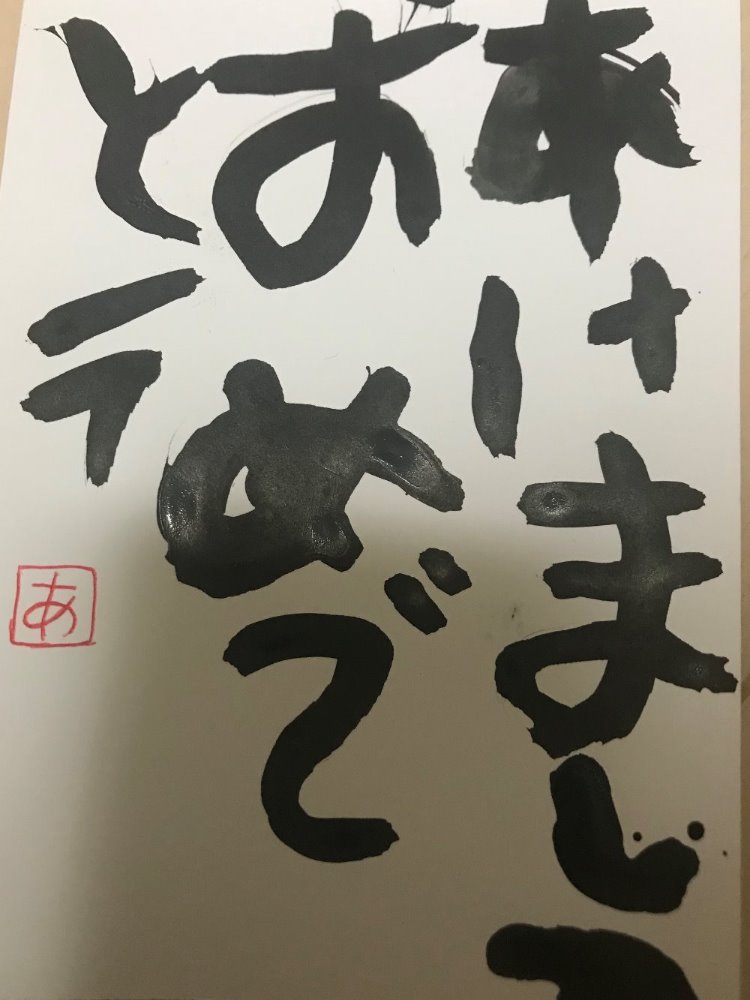 あけまして
おめで
とう
あ